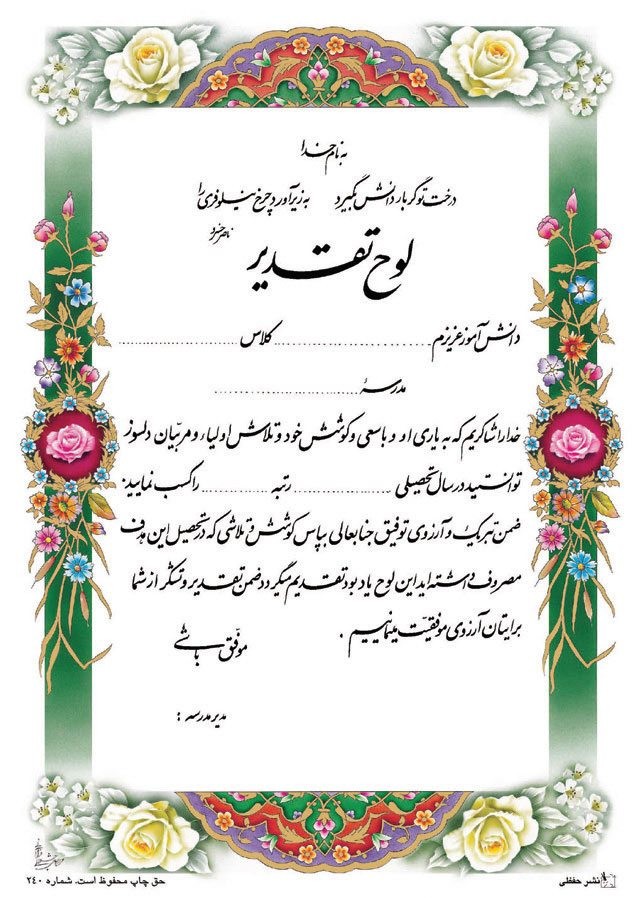 به نام خدا
درخت تو گر بار دانش بگیرد به زیر آورد چرخ نیلوفری را
ناصر خسرو
لوح تقدیر
دانش آموز عزیزم .................... کلاس ....................
مدرسهٔ ....................
خدا را شاکریم که به یاری او و با سعی و کوشش خود و تلاش اولیاء و مربیان دلسوز
توانستید در سال تحصیلی .................... رتبه .................... را کسب نمایید.
ضمن تبریک و آرزوی توفیق جنابعالی بپاس کوشش و تلاشی که در تحصیل این هدف
مصروف داشته اید این لوح یادبود تقدیم میگردد ضمن تقدیر و تشکر از شما
برایتان آرزوی موفقیت مینمائیم .
موفق باشی
مدیر مدرسه :
نشر حفظی
حق چاپ محفوظ است. شماره ۲۴۰